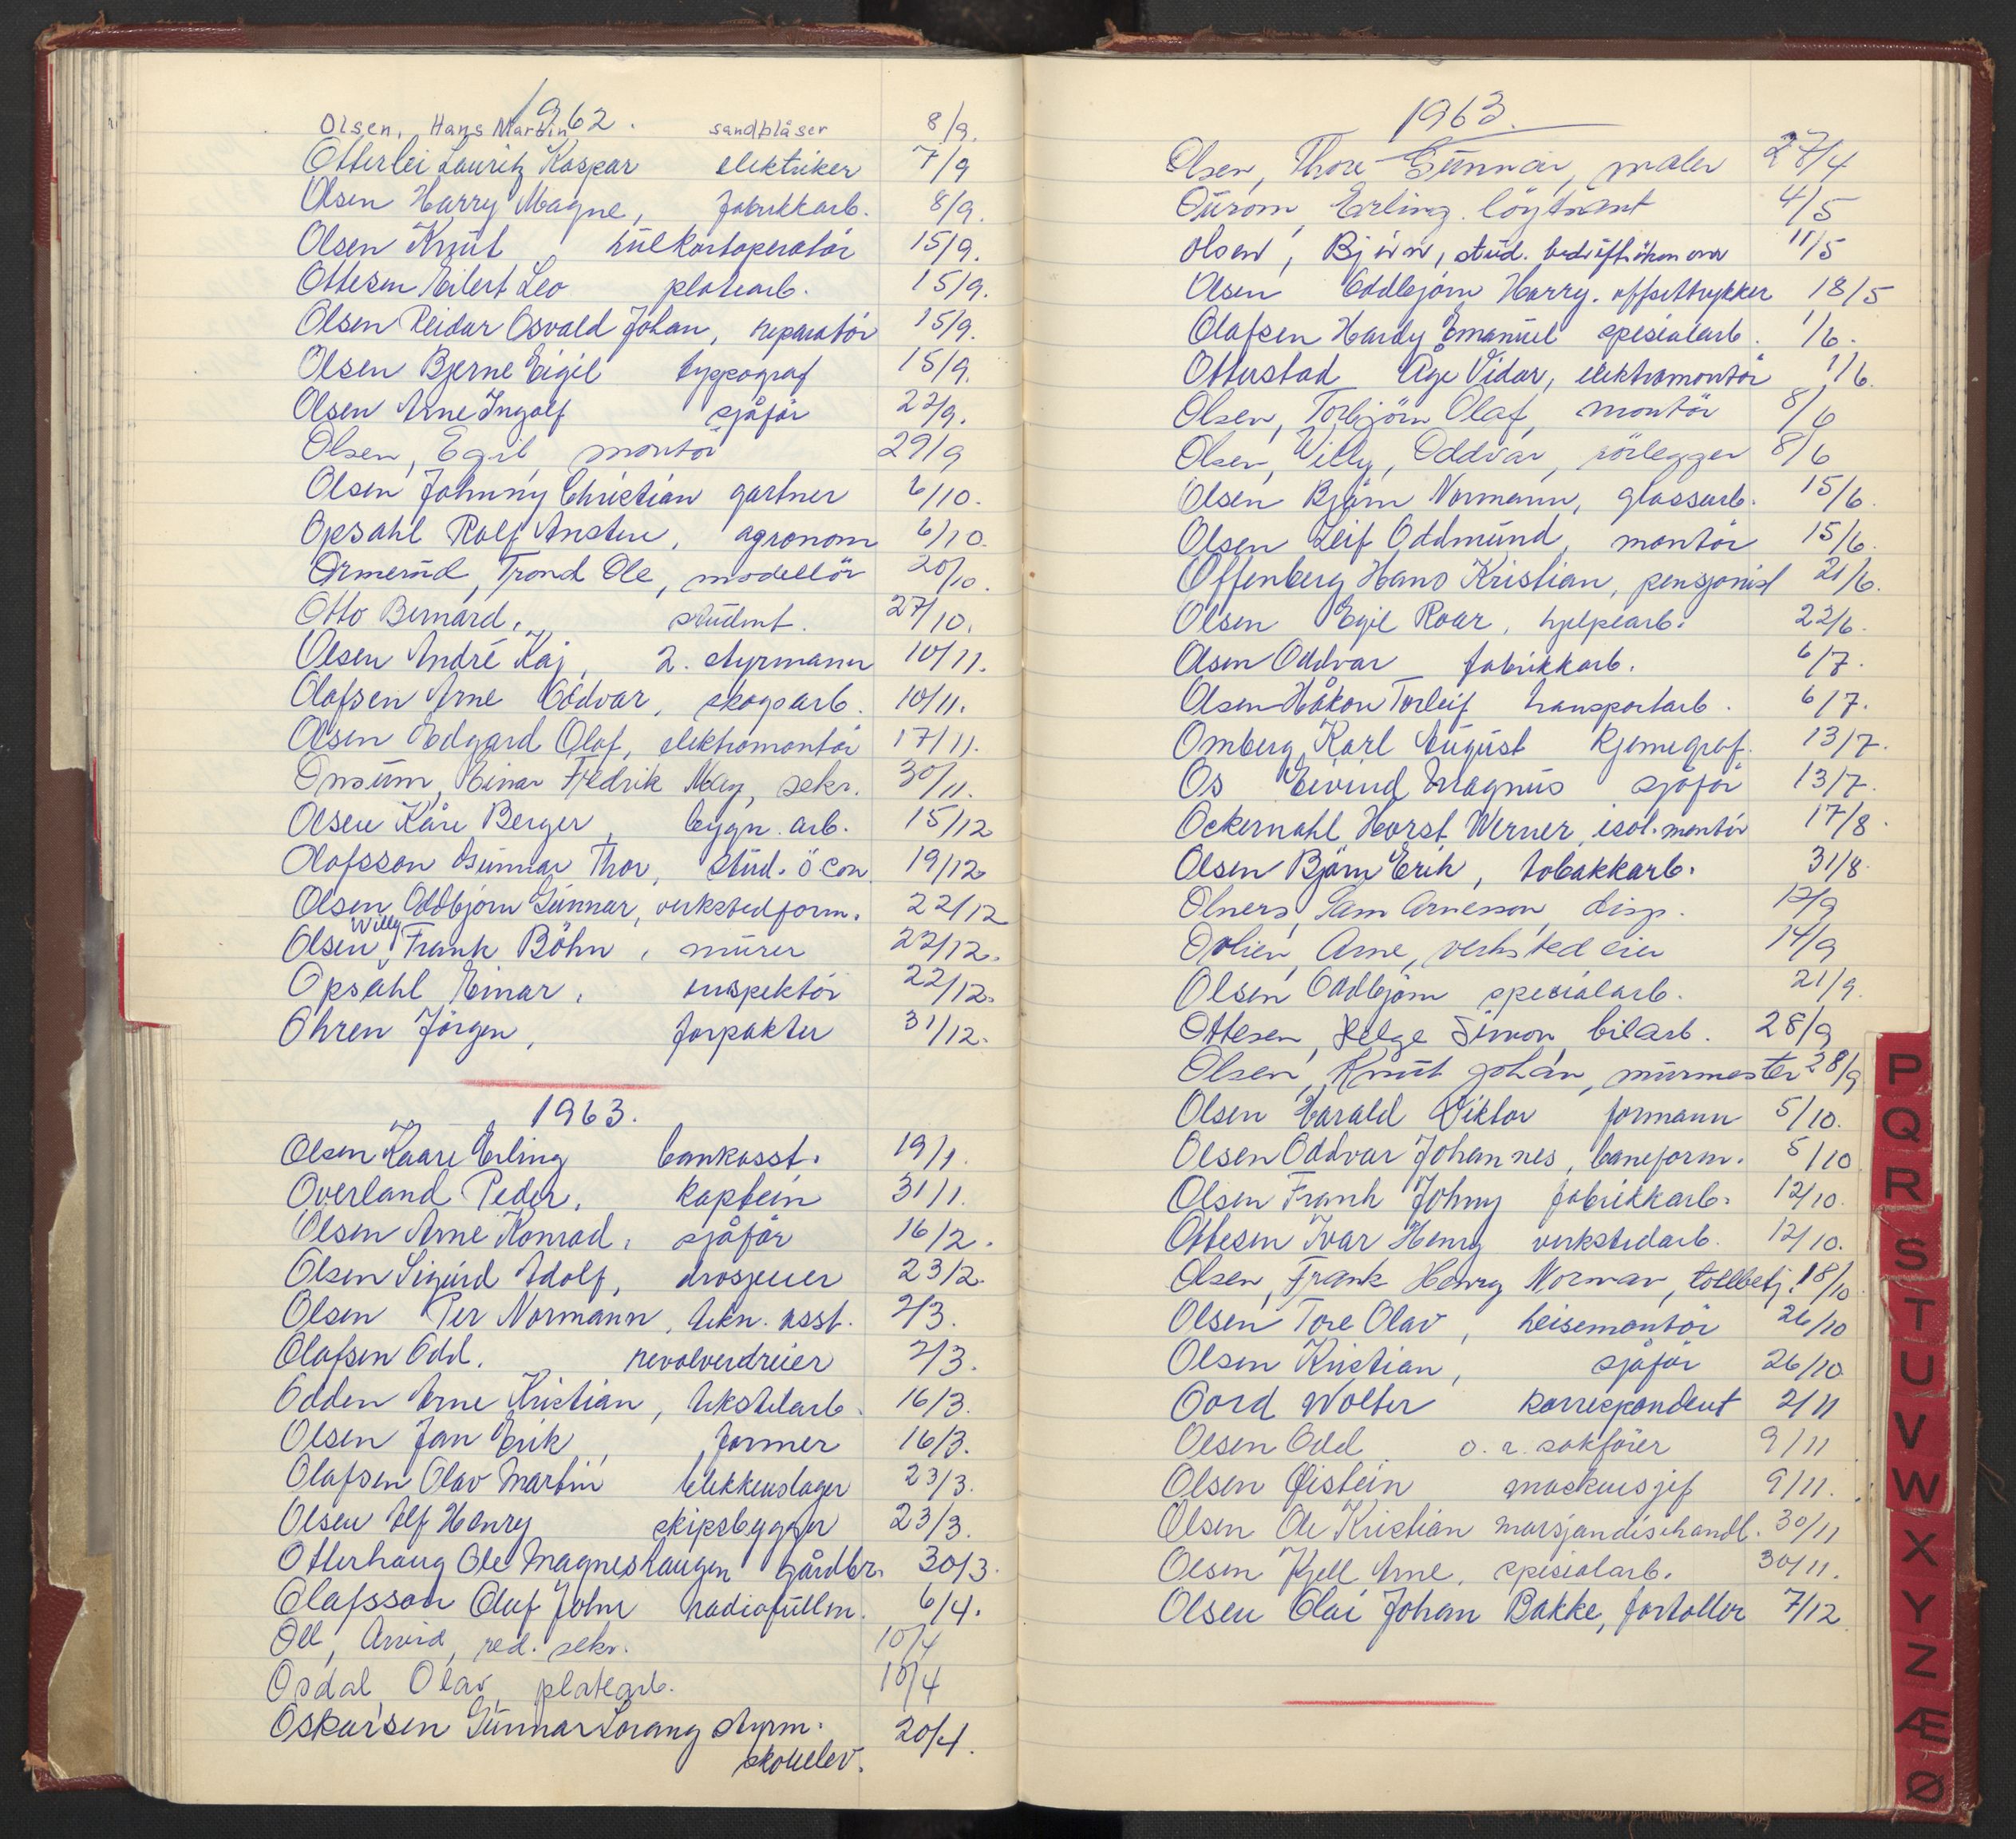 1962.
Olsen, Hans Martin sandblåser 8/9.
Otterlei Lauritz Kaspar elektriker 7/9
Olsen Harry Magne, fabrikkarb. 8/9.
Olsen Knut, hulkortoperatör 15/9.
Ottesen Eilert Leo platearb. 15/9.
Olsen Reidar Osvald Johan, reparatör 15/9.
Olsen Bjerne Eigil typograf 15/9.
Olsen Arne Ingolf sjåför 22/9.
Olsen, Egil, montör 29/9
Olsen Johnny Christian gartner 6/10.
Opsahl Rolf Ansten, agronom 6/10.
Ormerud, Trond Ole, modellör 20/10.
Otto Bernard, student. 27/10.
Olsen André Kaj, 2. styrmann 10/11.
Olafsen Arne Oddvar, skogsarb. 10/11.
Olsen Edgard Olaf, elektromontör 17/11.
Onsum, Einar Fredrik May, sekr. 30/11.
Olsen Kåre Berger, bygn. arb. 15/12
Olafsson Gunnar Thor, stud. öcon. 19/12.
Olsen Oddbjørn Gunnar, verkstedform. 22/12
Olsen, Willy Frank Böhn, murer 22/12.
Opsahl Einar, inspektör 22/12.
Ohren Jörgen, forpakter 31/12.
1963.
Olsen Kaare Erling bankasst. 19/1.
Overland Peder, kaptein 31/1.
Olsen Arne Konrad, sjåför 16/2.
Olsen Sigurd Adolf, drosjeeier 23/2.
Olsen Per Normann, tekn. asst. 2/3.
Olafsen Odd, revolverdreier 2/3.
Odden Arne Kristian, tekstilarb. 16/3.
Olsen Jan Erik, former 16/3.
Olafsen Olav Martin blikkenslager 23/3.
Olsen Alf Henry skipsbygger 23/3.
Otterhaug Ole Magneshaugen gårdbr. 30/3.
Olafsson Oluf John radiofullm. 6/4.
Oll, Arvid, red. sekr. 10/4
Opdal, Olav, platearb. 10/4
Oskarsen Gunnar Lorang styrm. 20/4.
skoleelev.
1963.
Olsen, Thore Gunnar, maler 27/4
Ourom, Erling. löytnant 4/5
Olsen, Björn, stud. bedriftsökonom 11/5
Olsen Oddbjørn Harry. offsettrykker 18/5
Olafsen Hardy Emanuel spesialarb. 1/6.
Otterstad Åge Vidar, elektromontör 1/6.
Olsen, Torbjörn Olaf, montör 8/6
Olsen, Willy, Oddvar, rörlegger 8/6
Olsen Björn Normann, glassarb. 15/6.
Olsen Leif Oddmund, montör 15/6.
Offenberg Hans Kristian, pensjonist 21/6.
Olsen Egil Roar, hjelpearb. 22/6.
Olsen Oddvar fabrikkarb. 6/7.
Olsen Håkon Torleif transportarb. 6/7.
Omberg Karl August kjemigraf. 13/7.
Os Eivind Magnus sjåför 13/7.
Ockernahl Horst Werner, isol. montör 17/8.
Olsen Björn Erik, tobakkarb. 31/8.
Olners, Sam Arnesson, disp. 12/9
Olien, Arne, verksted eier 14/9
Olsen Oddbjørn spesialarb. 21/9.
Ottesen, Helge Simon, bilarb. 28/9
Olsen, Knut Johan, murmester 28/9
Olsen Harald Viktor formann 5/10.
Olsen Oddvar Johannes, baneform. 5/10
Olsen Frank Johny fabrikkarb. 12/10.
Ottesen Ivar Henry verkstedarb. 12/10.
Olsen, Frank Henry Norman, tollbetj. 18/10.
Olsen Tore Olav, heisemontör 26/10
Olsen Kristian, sjåför 26/10
Oord Wolter korrespondent 2/11
Olsen Odd o. r. sakförer 9/11
Olsen Øistein maskinsjef 9/11.
Olsen Ole Kristian marsjandisehandl. 30/11
Olsen Kjell Arne, spesialarb. 30/11.
Olsen Olai Johan Bakke, fortoller 7/12.
P
Q
R
S
T
U
V
W
X
Y
Z
Æ
Ø